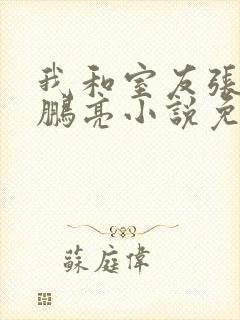 我和室友張
鵬亮小說免
蘇庭偉